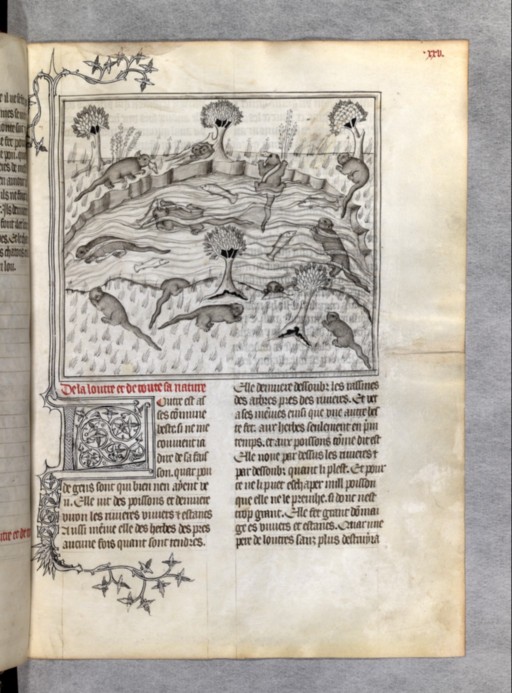 .xxii.
De la loutre et de toute sa nature
Loutre est as
ses commune
beste si ne me
convient ia
dire de sa fais
son. quar pou
de gens sont qui bien nen ayent ve
u. Elle vit des poissons et demeure
vers les rivieres viviers et estancs
Aussi menie elle des herbes des pres
aucune fois quant sont tendres.
Elle demeure dessoubz les racines
des arbres pres des rivieres. Et vet
a ses menies einsi que une autre bes
te fet. aux herbes seulement en prin
temps. et aux poissons comme dit est
Elle noue par dessus les rivieres et
par dessoubz quant li plest. Et pour
ce ne li puet eschaper mill poisson
que elle ne le preinhe. si donc nest
trop grant. Elle fet grant domai
ge es viviers et estancs. Quar une
pere de loutres sanz plus destruyra